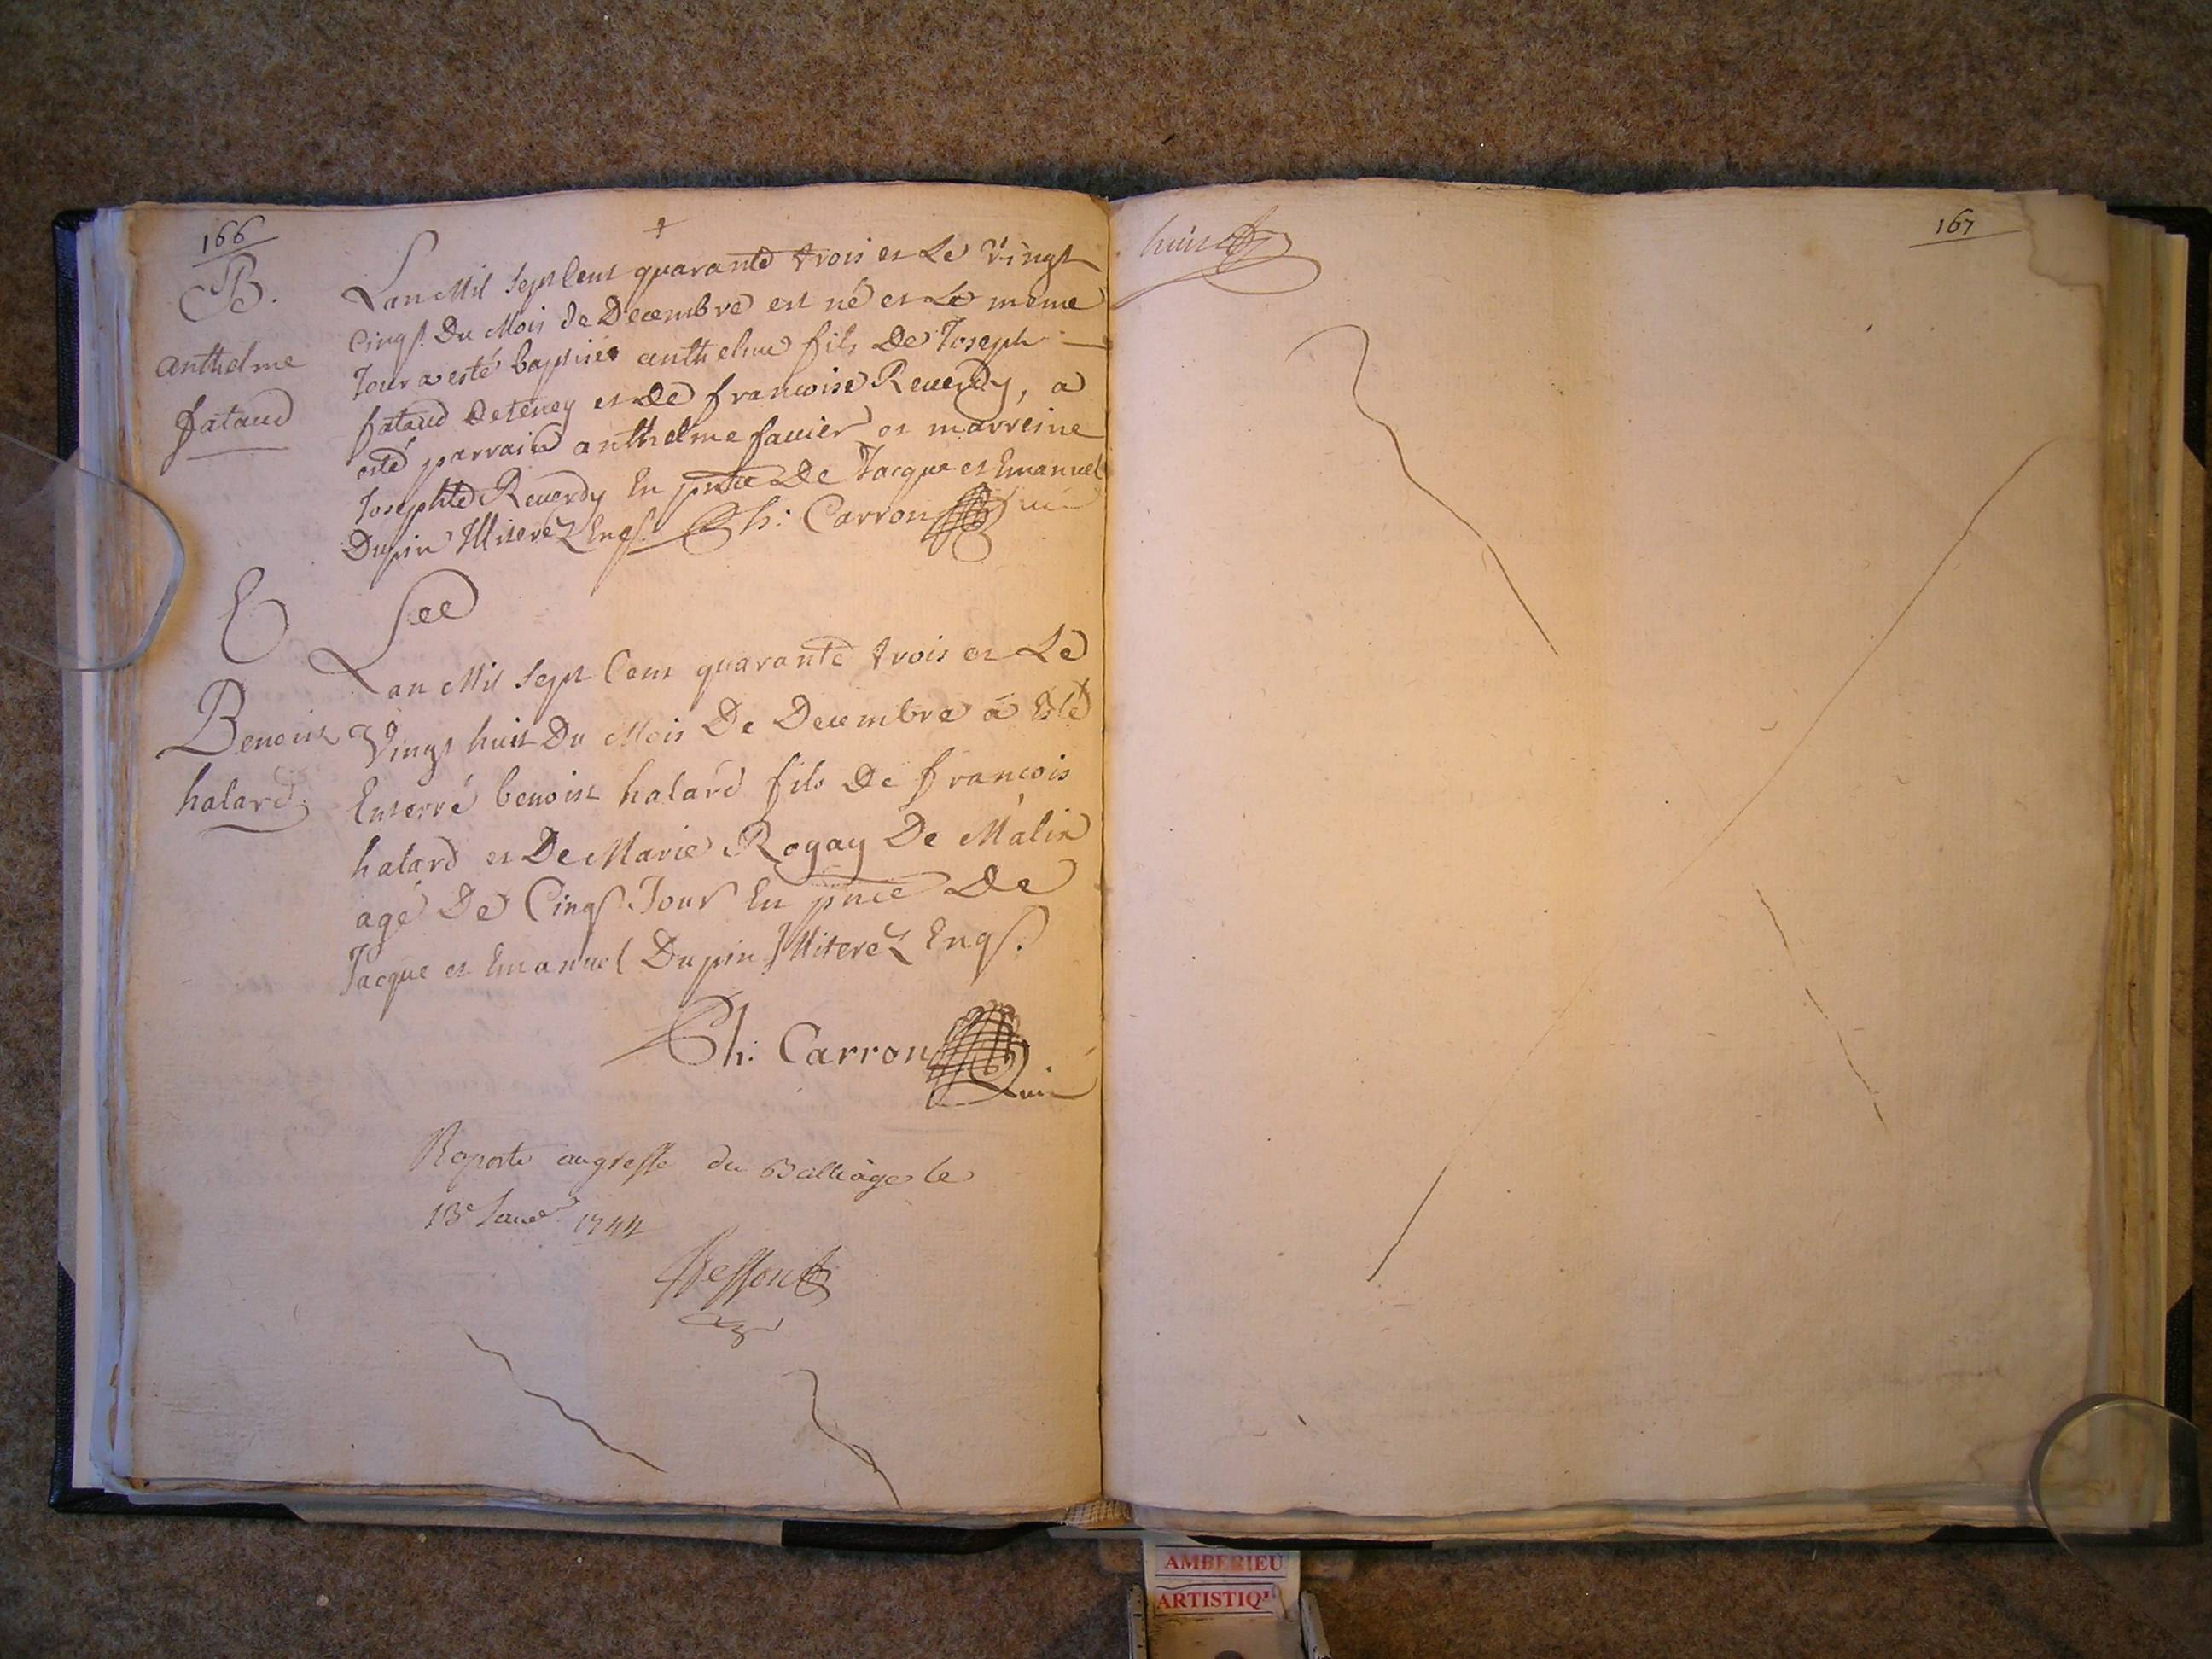 166
B.
anthelme
fataud
Lan Mil Sept Cent quarante trois et Le Vingt
Cinqs. Du Mois de Decembre est né et Le meme
Jour a esté baptisé anthelme fils De Joseph
fataud De teney et De francoise Reverdy, a
esté parrain anthelme favier et marreine
Josephte Reverdy En pnce De Jacque et Emanuel
Dupin Illiterez Enqs. Ch: Carron Curé
E
Benoist
halard.
Lan Mil Sept Cent quarante trois et Le
Vingt huit Du Mois De Decembre a Esté
Enterré benoist halard fils De françois
halard et De Marie Rogay De Malix
agé De Cinqs Jour En pnce De
Jacque et Emanuel Dupin Illiterez Enqs.
Ch: Carron Curé
Raporté au greffe du Balliage le
13e Janer 1744
huit
167
AMBERIEU
ARTISTIQU